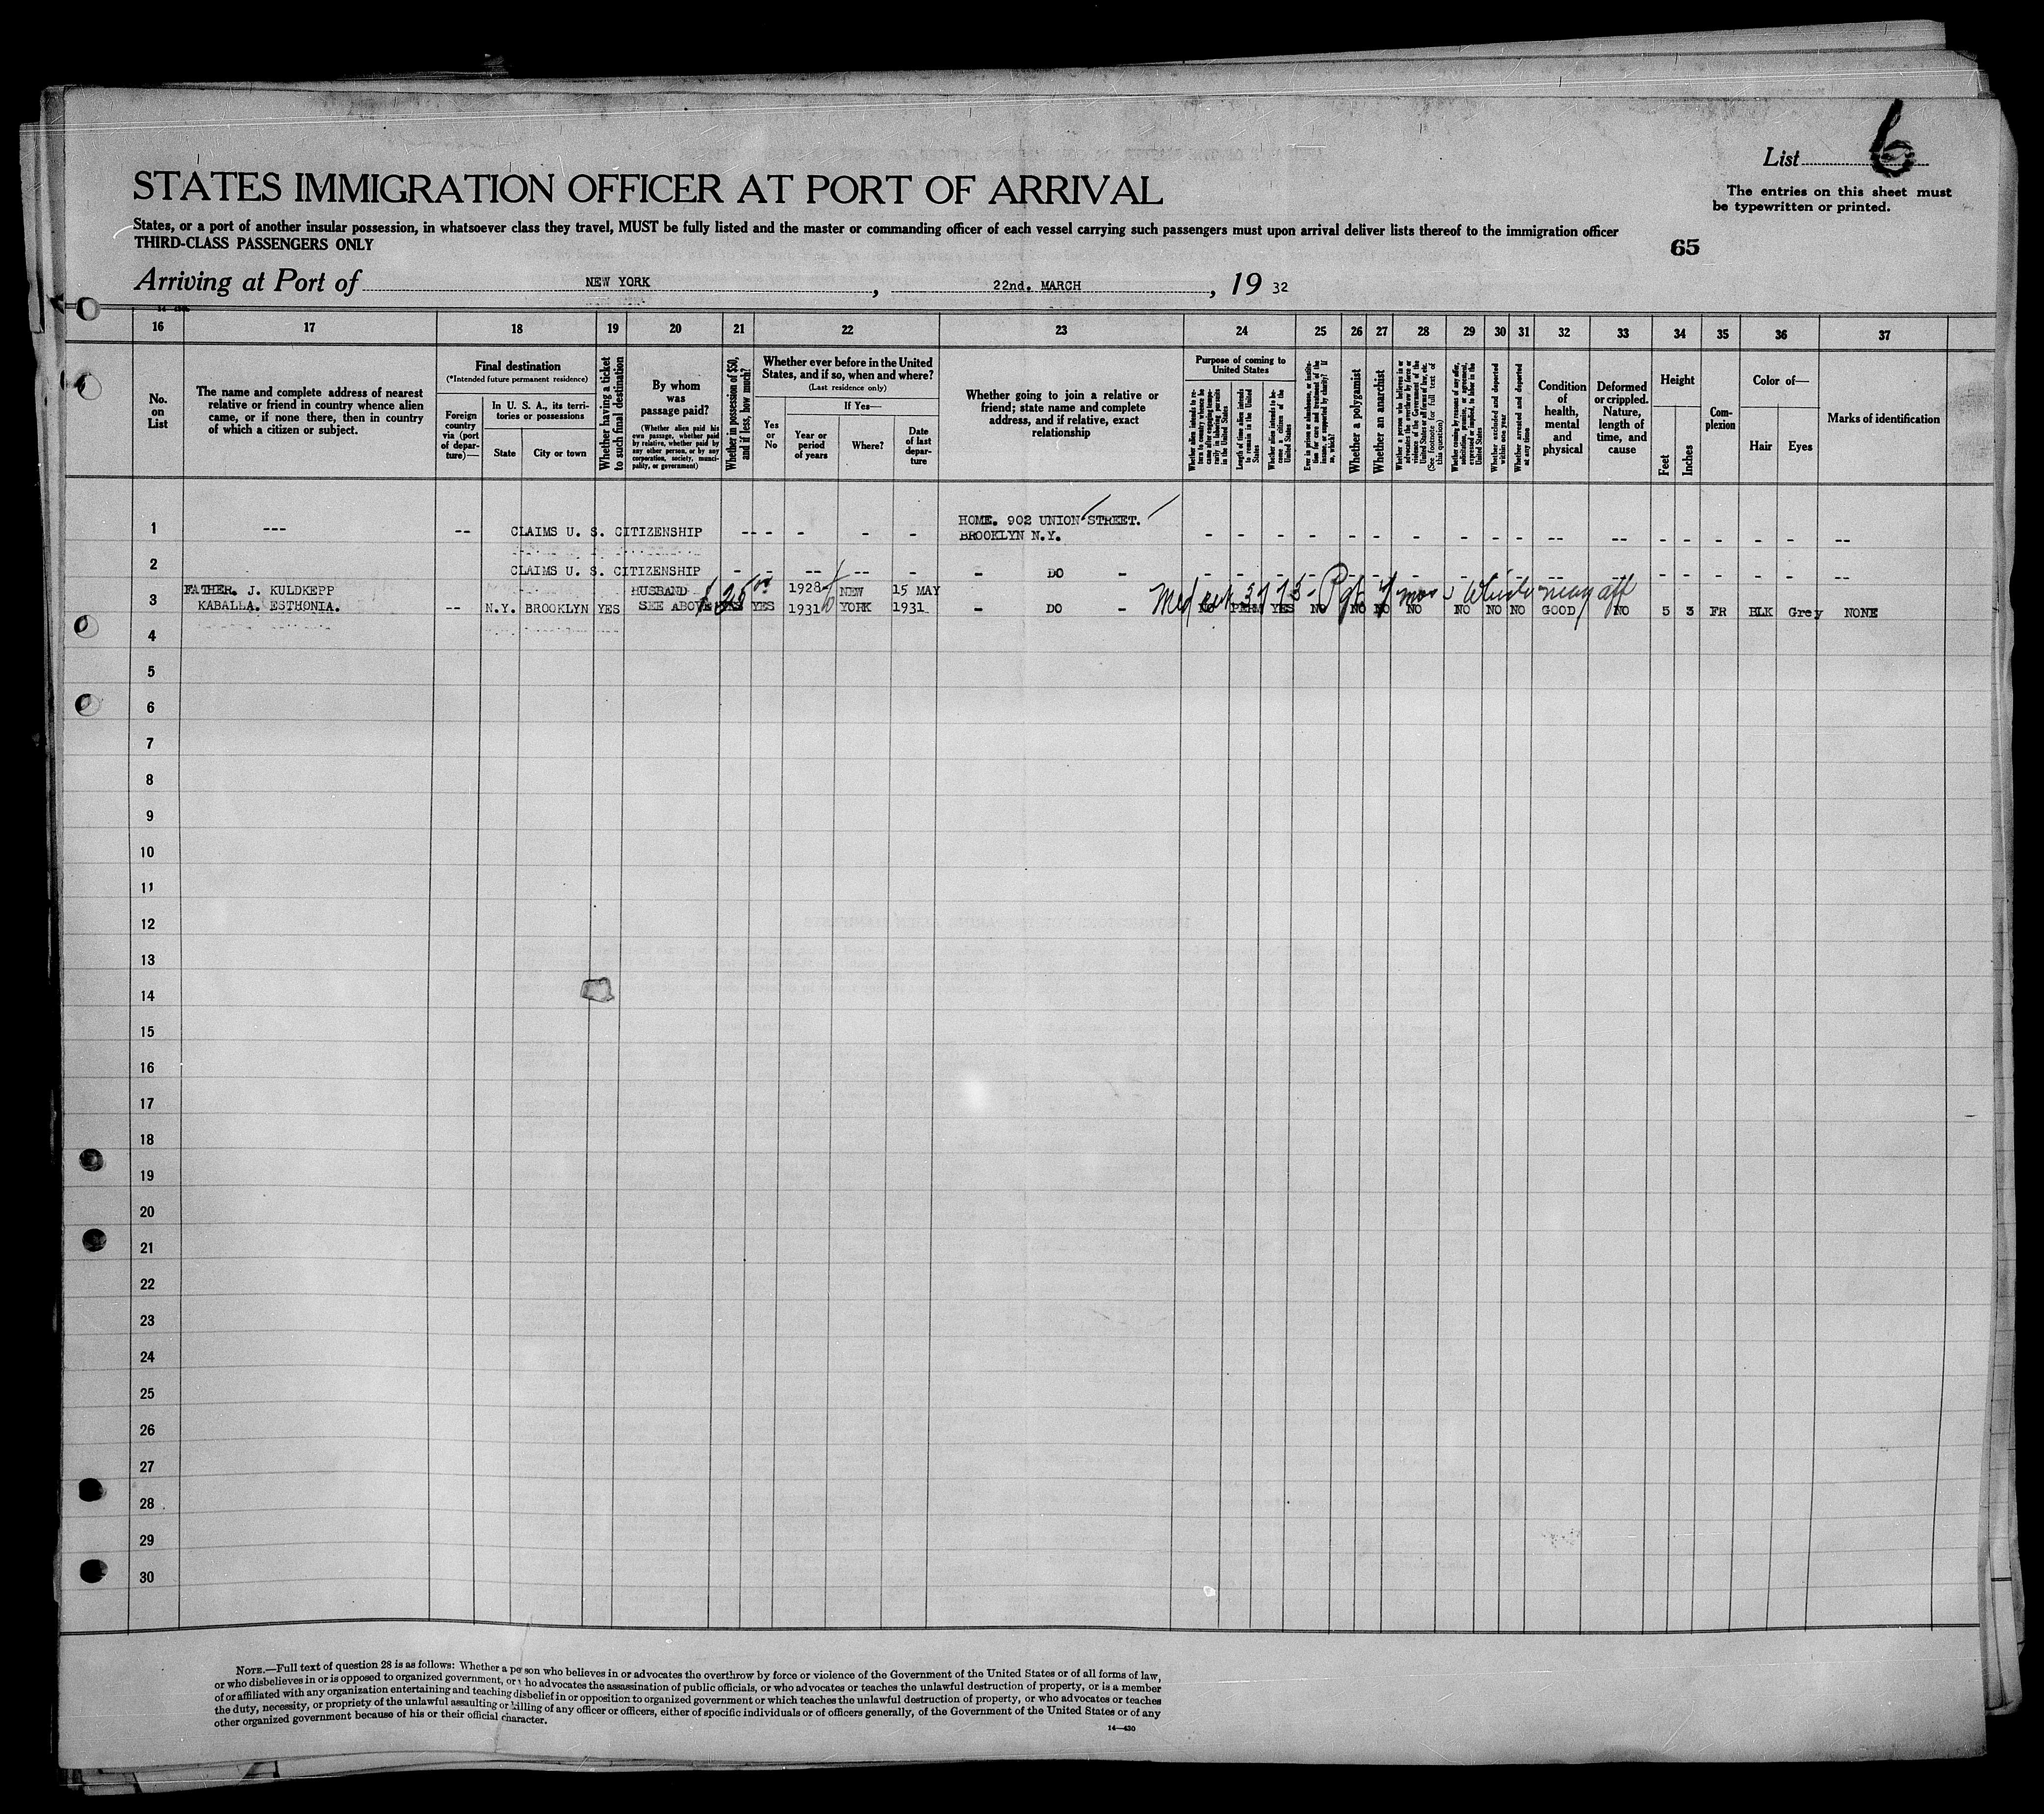 List 6
STATES IMMIGRATION OFFICER AT PORT OF ARRIVAL
The entries on this sheet must
be typewritten or printed.
States, or a port of another insular possession, in whatsoever class they travel, MUST be fully listed and the master or commanding officer of each vessel carrying such passengers must upon arrival deliver lists thereof to the immigration officer
THIRD-CLASS PASSENGERS ONLY
65
Arriving at Port of NEW YORK, 22nd. MARCH, 19 32
16 17 18 19 20 21 22 23 24 25 26 27 28 29 30 31 32 33 34 35 36 37
No.
on
List
The name and complete address of nearest
relative or friend in country whence alien
came, or if none there, then in country
of which a citizen or subject.
Final destination
(*Intended future permanent residence)
Foreign
country
via (port
of depar-
ture)—
In U. S. A., its terri-
tories or possessions
State
City or town
Whether having a ticket
to such final destination
By whom
was
passage paid?
(Whether alien paid his
own passage, whether paid
by relative, whether paid by
any other person, or by any
corporation, society, munici-
pality, or government)
Whether in possession of $50,
and if less, how much?
Whether ever before in the United
States, and if so, when and where?
(Last residence only)
Yes
or
No
If Yes—
Year or
period
of years
Where?
Date
of last
depar-
ture
Whether going to join a relative or
friend; state name and complete
address, and if relative, exact
relationship
Purpose of coming to
United States
Whether alien intends to re-
turn to country whence he
came after engaging tempo-
rarily in laboring pursuits
in the United States
Length of time alien intends
to remain in the United
States
Whether alien intends to be-
come a citizen of the
United States
Ever in prison or almshouse, or institu-
tion for care and treatment of the
insane, or supported by charity? If
so, which?
Whether a polygamist
Whether an anarchist
Whether a person who believes in or
advocates the overthrow by force or
violence of the Government of the
United States or all forms of law, etc.
(See footnote for full text of
this question)
Whether coming by reason of any offer,
solicitation, promise, or agreement,
expressed or implied, to labor in the
United States
Whether excluded and deported
within one year
Whether arrested and deported
at any time
Condition
of
health,
mental
and
physical
Deformed
or crippled.
Nature,
length of
time, and
cause
Height
Feet
Inches
Com-
plexion
Color of—
Hair
Eyes
Marks of identification
1 --- -- CLAIMS U. S. CITIZENSHIP -- - - - - HOME. 902 UNION STREET. - - - - - - - - - - -- -- - - - - - --
BROOKLYN N.Y.
2 CLAIMS U. S. CITIZENSHIP - - -- -- - - DO - - - - - - - - - - - -- -- - - - - - --
FATHER. J. KULDKEPP HUSBAND 1928 NEW 15 MAY
3 KABALLA. ESTHONIA. -- N.Y. BROOKLYN YES SEE ABOVE $25 YES 1931 YORK 1931 - DO - NO PERM YES NO NO NO NO NO NO NO GOOD NO 5 3 FR BLK Grey NONE
4
5
6
7
8
9
10
11
12
13
14
15
16
17
18
19
20
21
22
23
24
25
26
27
28
29
30
NOTE.—Full text of question 28 is as follows: Whether a person who believes in or advocates the overthrow by force or violence of the Government of the United States or of all forms of law,
or who disbelieves in or is opposed to organized government, or who advocates the assassination of public officials, or who advocates or teaches the unlawful destruction of property, or is a member
of or affiliated with any organization entertaining and teaching disbelief in or opposition to organized government or which teaches the unlawful destruction of property, or who advocates or teaches
the duty, necessity, or propriety of the unlawful assaulting or killing of any officer or officers, either of specific individuals or of officers generally, of the Government of the United States or of any
other organized government because of his or their official character.
14—430